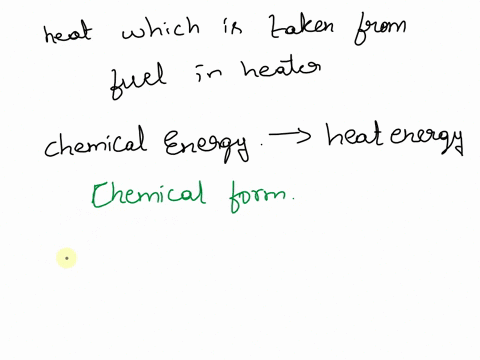 heat which is taken from
fuel in heater
chemical Energy. → heat energy
Chemical form.